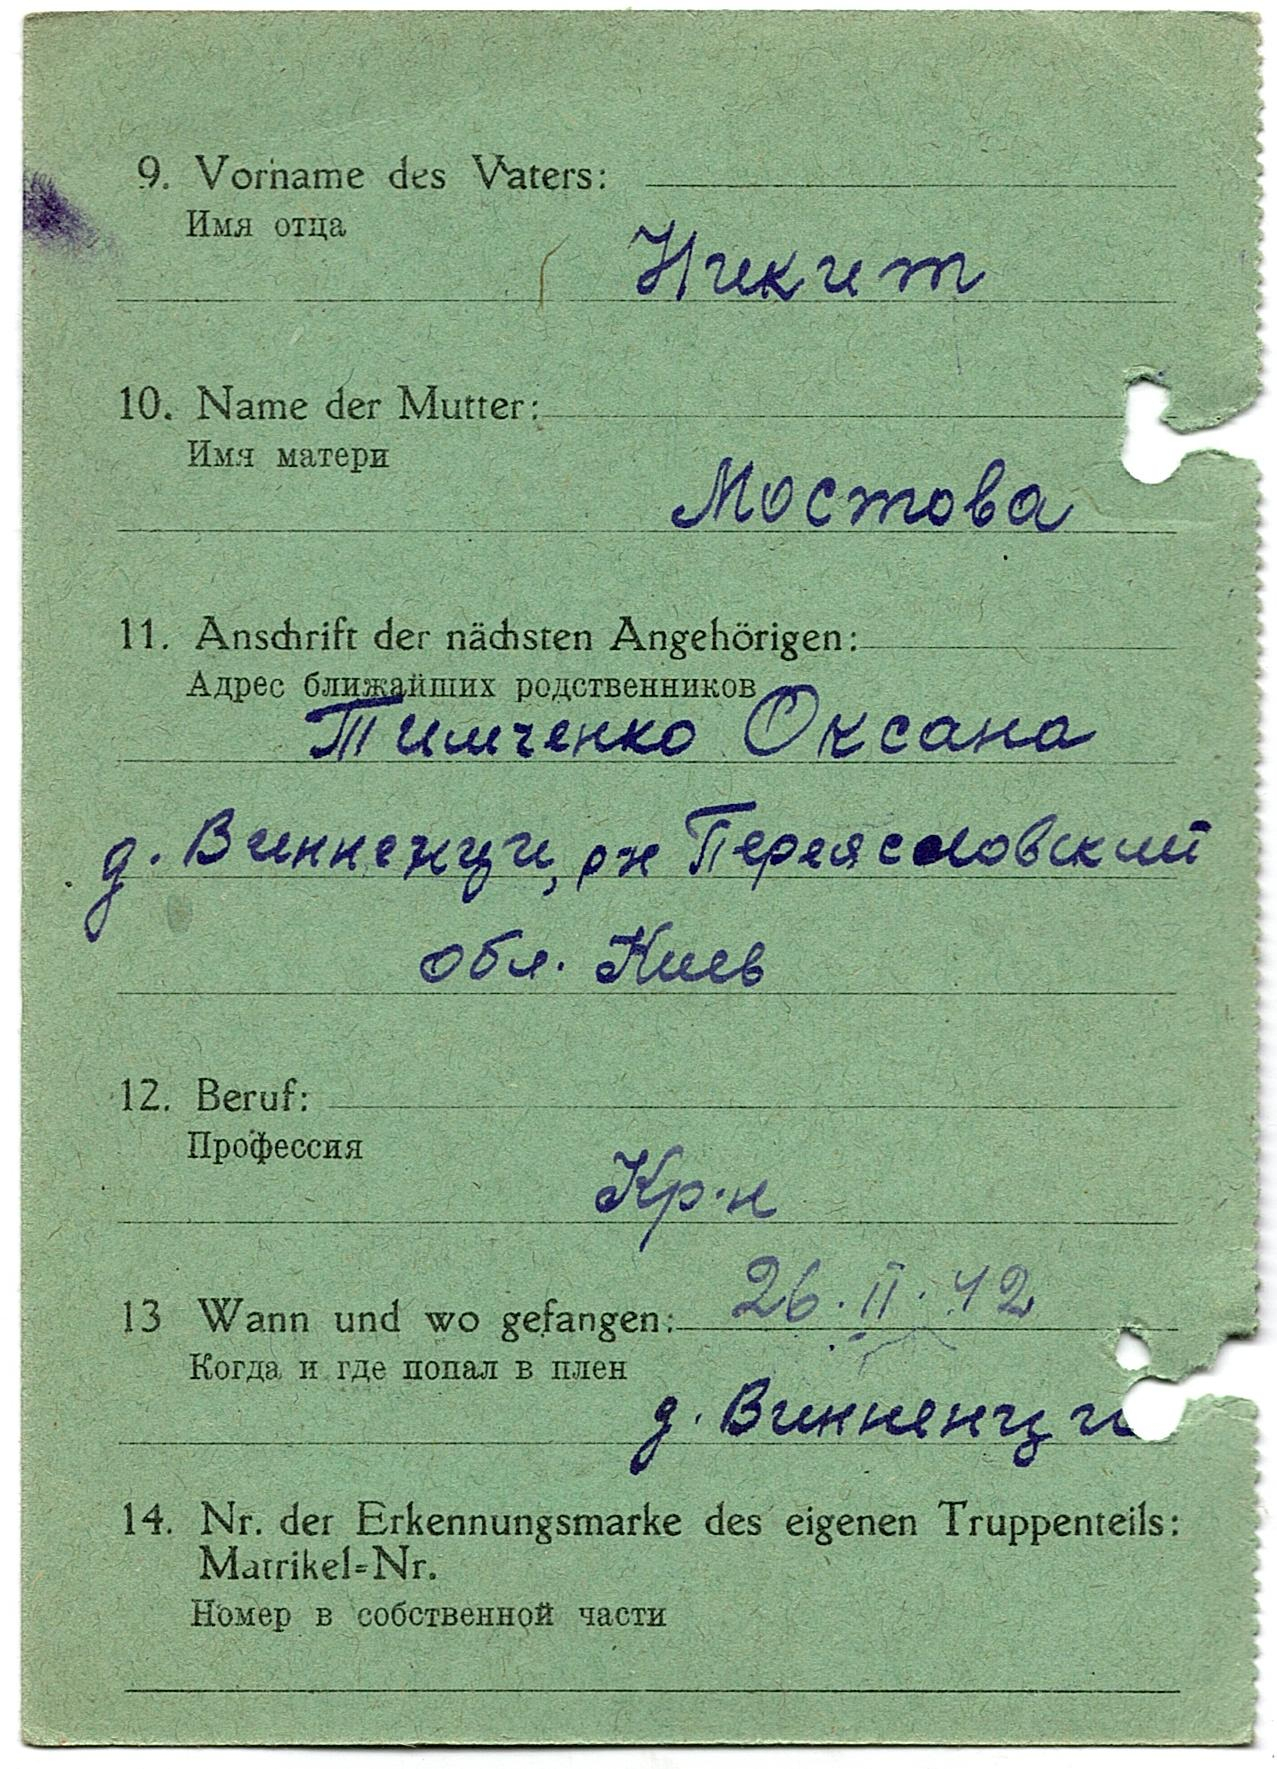 9. Vorname des Vaters:
Имя отца
Никит
10. Name der Mutter:
Имя матери
Мостова
11. Anschrift der nächsten Angehörigen:
Адрес ближайших родственников
Тимченко Оксана
д. Винненци, рн Переясловский
обл. Киев
12. Beruf:
Профессия
Кр-н
13 Wann und wo gefangen: 26.II.42
Когда и где попал в плен
д. Винненци
14. Nr. der Erkennungsmarke des eigenen Truppenteils:
Matrikel=Nr.
Номер в собственной части